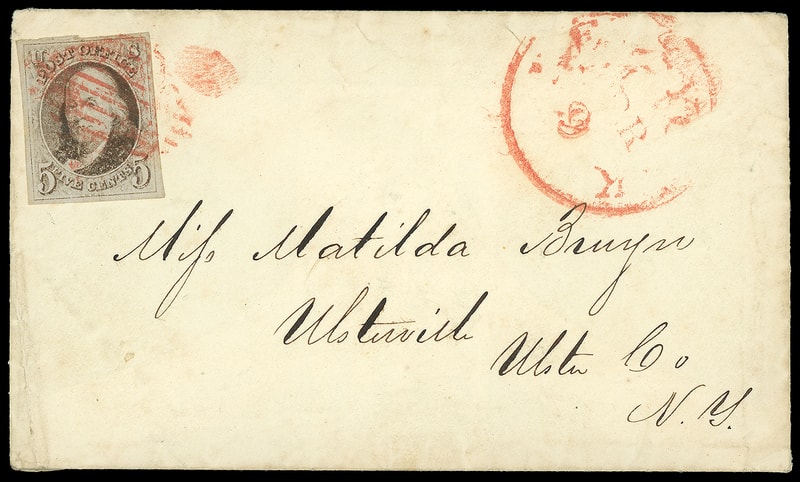 U S
POST OFFICE
5 FIVE CENTS 5
Miss Matilda Bruyn
Ulsterville
Ulster Co
N. Y.